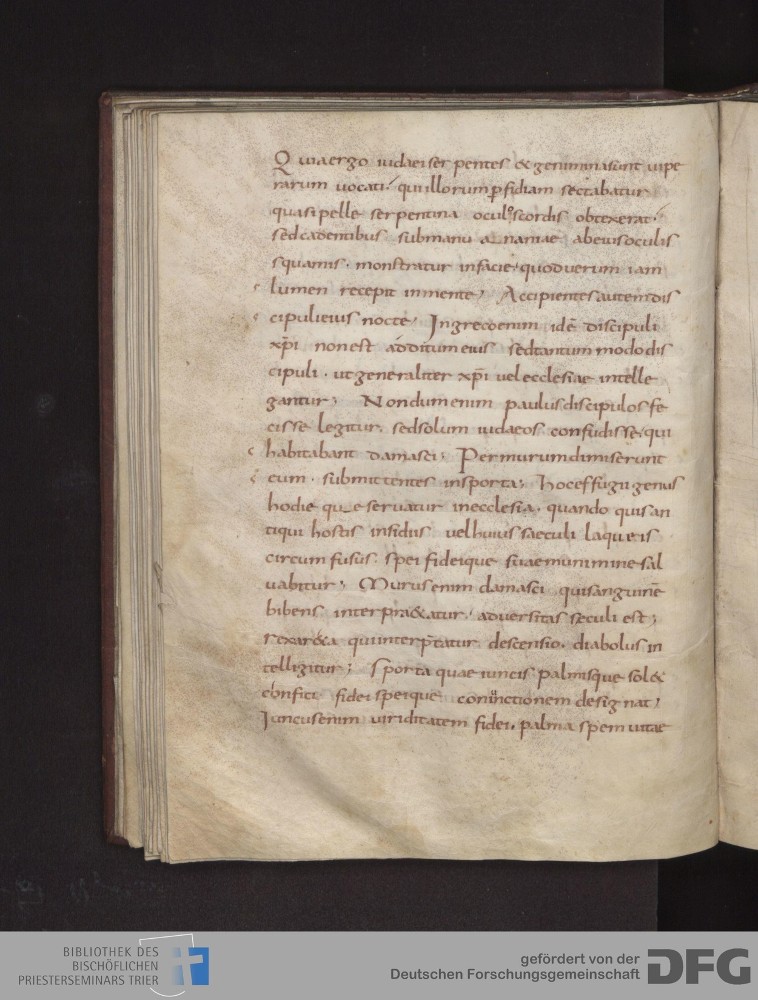 Quia ergo iudaei serpentes & genimina sunt uipe
rarum uocati. qui illorum ꝑfidiam sectabatur
quasi pelle serpentina oculos cordis obtexerat.
sed cadentibus sub manu ananiae ab eius oculis
squamis. monstratur in facie. quod uerum iam
lumen recepit in mente; Accipientes autem dis
cipuli eius nocte. Ingrecoenim idē discipuli
xp̄i non est additum eius sed tantummodo dis
cipuli. ut generaliter xp̄i uel ecclesiae intelle
gantur; Nondum enim paulus discipulos fe
cisse legitur. sed solum iudaeos confudisse. qui
habitabant damasci; Per murum dimiserunt
eum. submittentes in sporta; Hoc effugii genus
hodie quęque seruatur in ecclesia. quando quis an
tiqui hostis insidiis uel huius saeculi laqueis
circumfusus. spei fideique suae munimine sal
uabitur; Murus enim damasci qui sanguinē
bibens interpra&atur. aduersitas seculi est;
rex ar&a qui interp̄tatur descensio. diabolus in
telligitur; Sporta quae iuncis palmisque sol&
confici. fidei speique coniunctionem designat;
Iuncus enim uiriditatem fidei. palma spem uitae
BIBLIOTHEK DES
BISCHÖFLICHEN
PRIESTERSEMINARS TRIER
gefördert von der
Deutschen Forschungsgemeinschaft
DFG